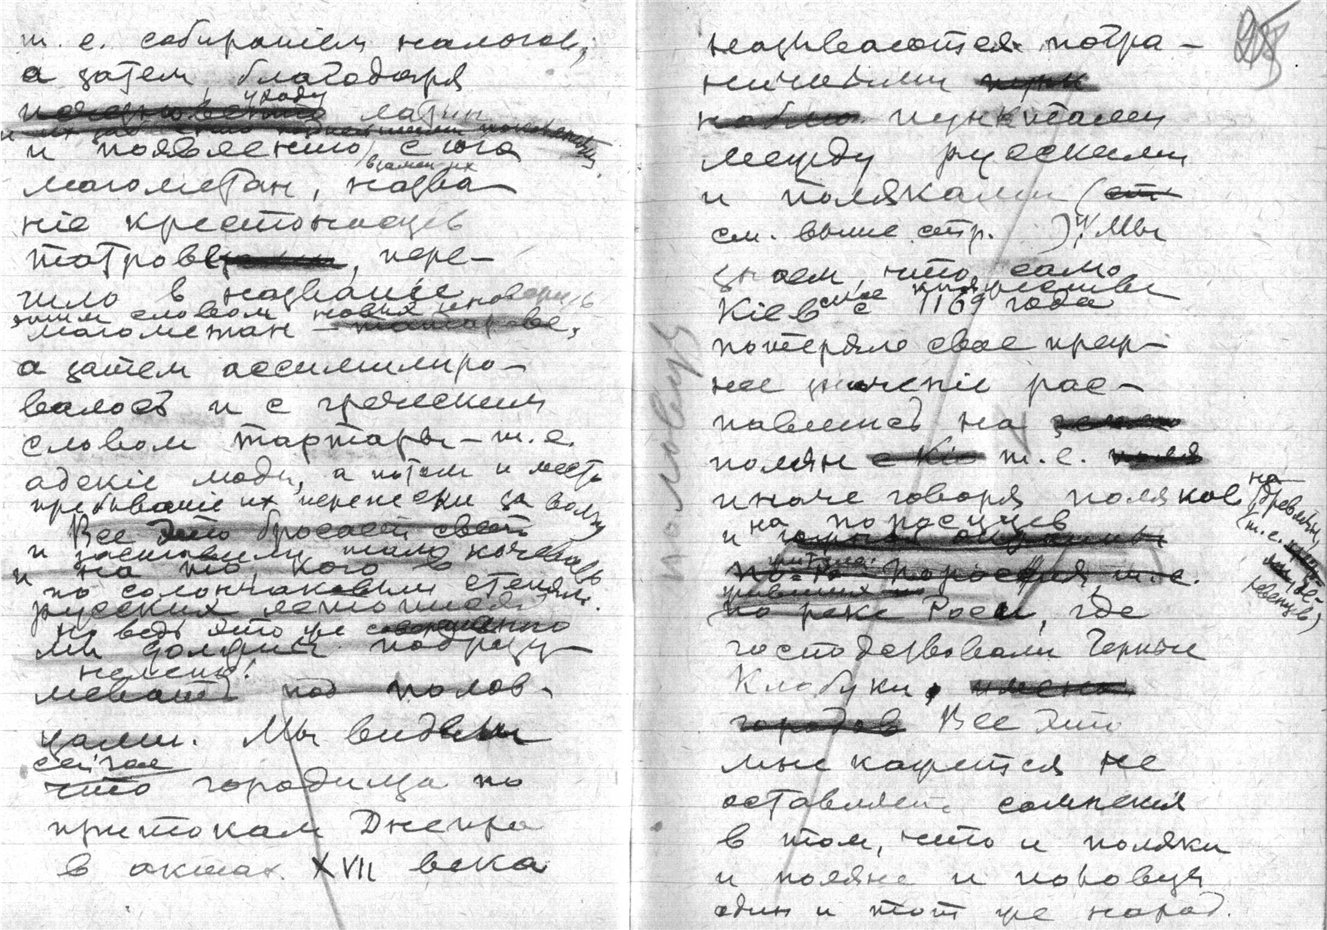 т. е. собиранiем налогов,
а затем благодаря
уходу
латин
и появленiю с юга
взамен их
магометан, назва-
нiе крестоносцев
татров, пере-
шло в названiе
этим словом новых иноверцев
магометан - татарове,
а затем ассимилиро-
валось и с греческим
словом тартары - т. е.
адскiе люди, а потом и место
пребыванiе их перенесли за Волгу
Все это бросает свет
и заставили кочевать
и на то кого в
и по солончаковым степям.
русских летописях
Но ведь это же совершенно
мы должны подразу-
нелепо!
мевать под полов-
цами. Мы видели
сейчас
что городища по
притокам Днепра
в актах XVII века
205
называются погра-
ничными
пунктами
между русскими
и поляками (
см. выше стр. ) Мы
знаем, что само
Кiевское княжество
с 1169 года
потеряло свое преж-
нее значенiе рас-
павшись на
полян т. е.
иначе говоря поляков на древлян,
(т. е.
и на поросцев
Поросья, т. е.
по реке Роси, где
господствовали Черные
Клобуки, имена
городов Все это
мне кажется не
оставляет сомненiя
в том, что и поляки
и поляне и половцы
один и тот же народ.
половцы